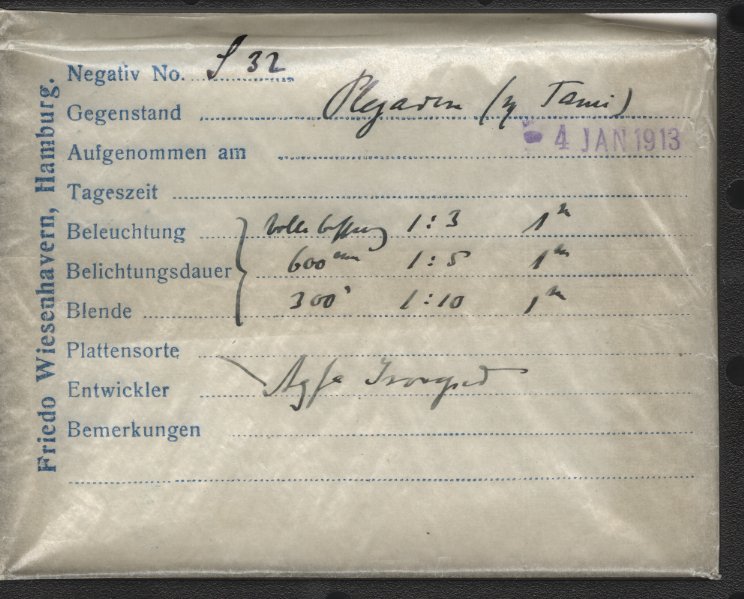 Friedo Wiesenhavern, Hamburg.
Negativ No. S 32
Gegenstand Plejaden (η Tauri)
4 JAN 1913
Aufgenommen am
Tageszeit
Beleuchtung volle Öffnung 1:3 1m
Belichtungsdauer 600mm 1:5 1m
Blende 300" 1:10 1m
Plattensorte
Entwickler Agfa
Bemerkungen